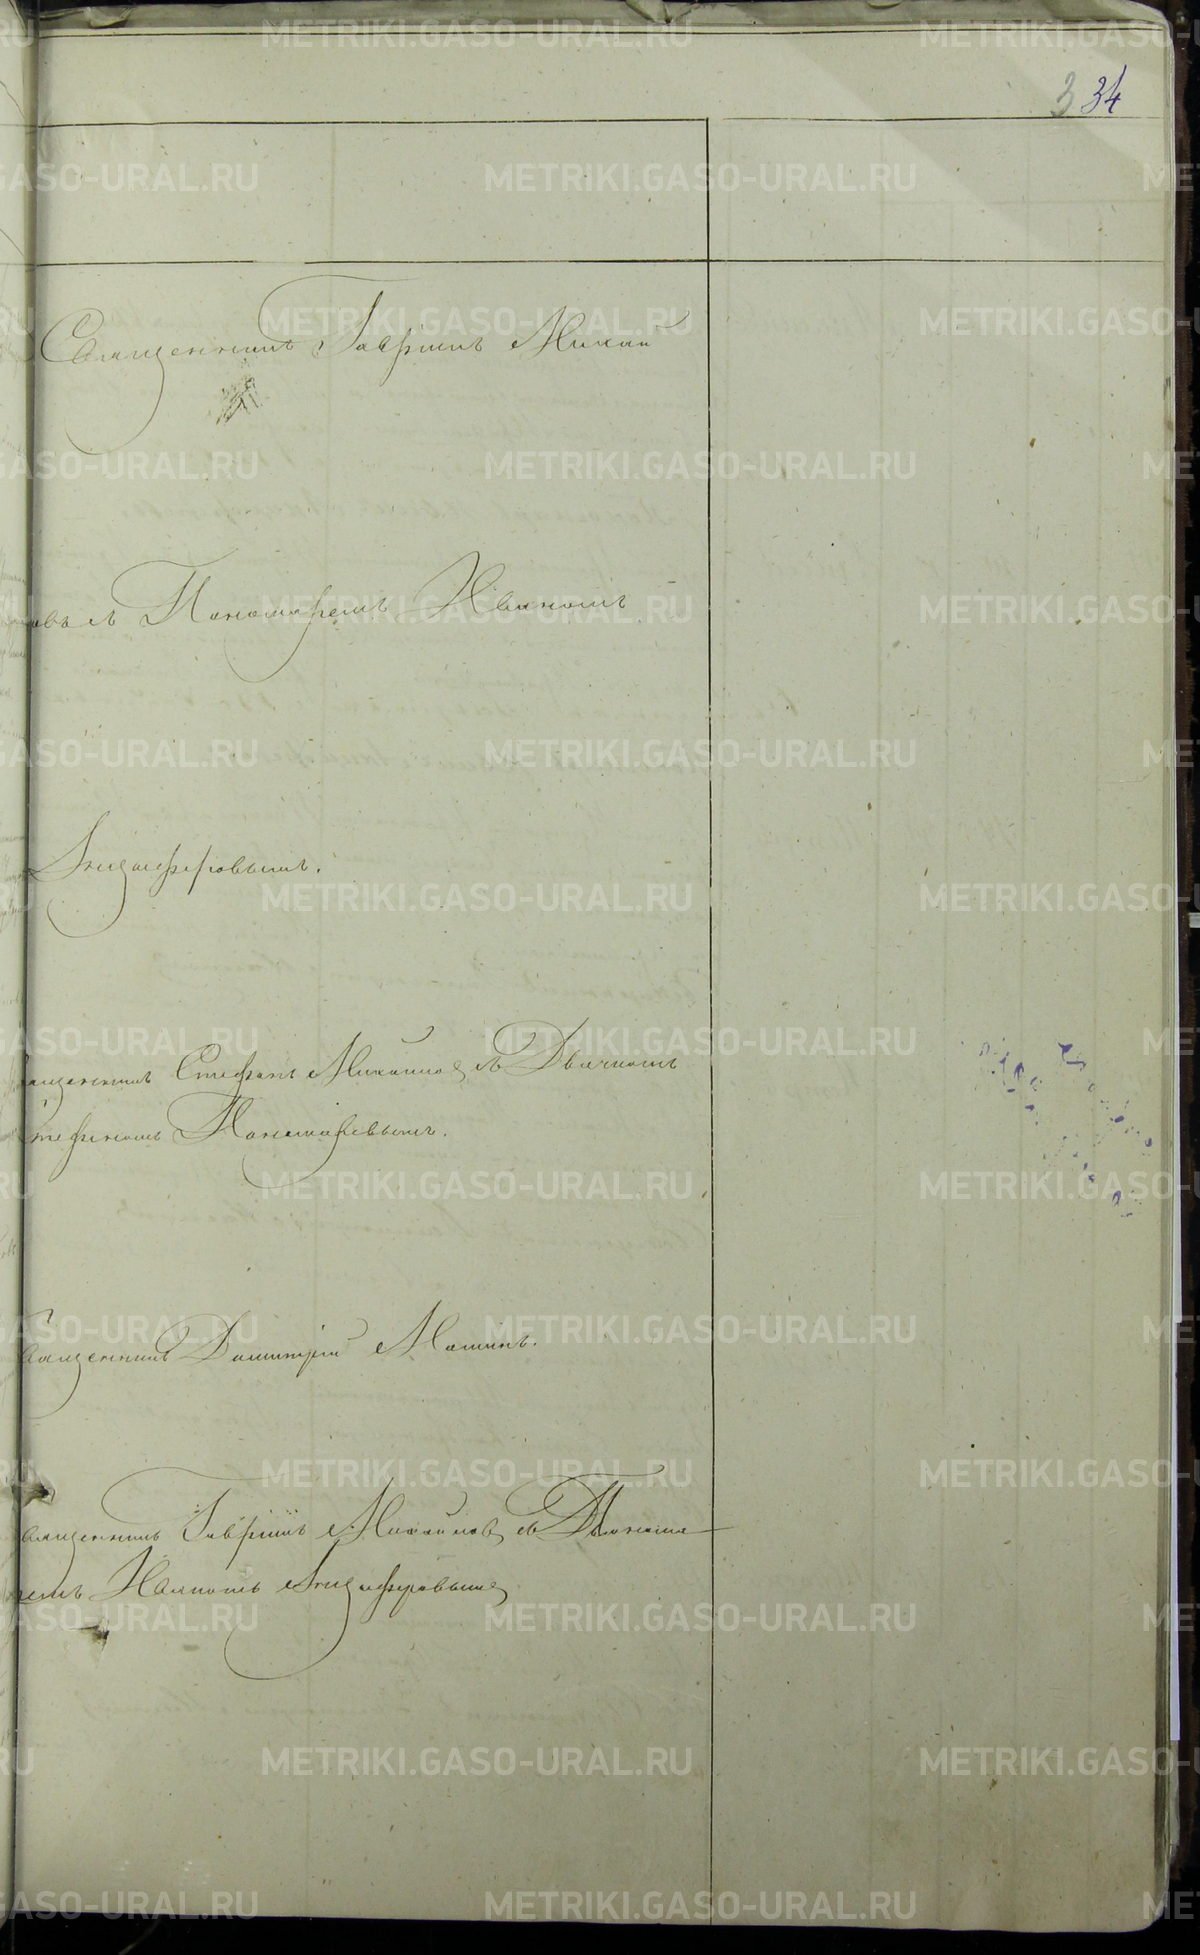 3 34
Священникъ Гавріилъ Михай
овъ съ Пономаремъ Иваномъ
Анцыферовымъ.
ященникъ Стефанъ Михайловъ съ Дьячкомъ
Стефаномъ Пономаревымъ.
Священникъ Димитрій
вященникъ Гавріилъ Михайловъ съ Понома
ремъ Иваномъ Анцыферовымъ
METRIKI.GASO-URAL.RU